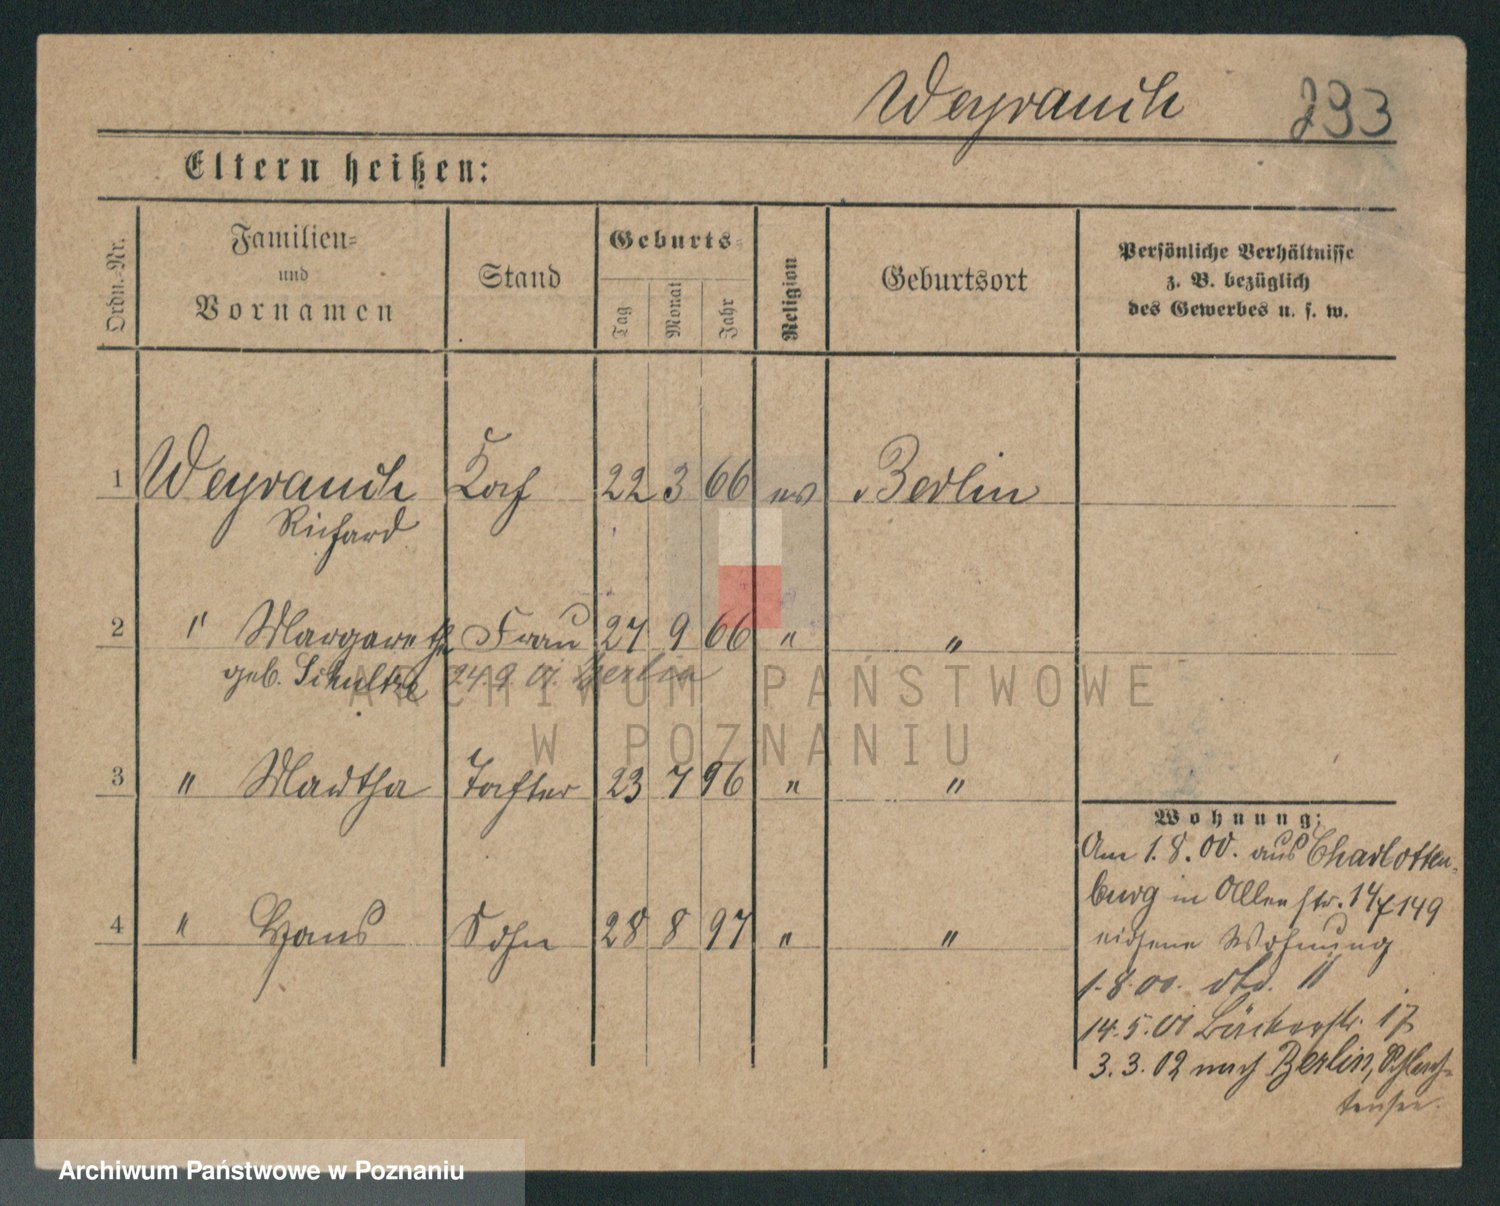 Weyrauch 293
Eltern heißen:
Ordn.-Nr.
Familien-
und
Vornamen
Stand
Geburts-
Tag
Monat
Jahr
Religion
Geburtsort
Persönliche Verhältnisse
z. B. bezüglich
des Gewerbes u. s. w.
1 Weyrauch Koch 22 3 66 ev Berlin
Richard
2 " Margarethe Frau 27 9 66 " "
geb. Schultze 24.9.01. Berlin
3 " Martha Tochter 23 7 96 " "
4 " Hans Sohn 28 8 97 " "
Wohnung:
Am 1.8.00. aus Charlotten-
burg in str. 149
Wohnung
1.8.00. dto. 11
14.5.01 Bäckerstr. 17
3.3.02 nach Berlin, Schlach-
tensee.
ARCHIWUM PAŃSTWOWE
W POZNANIU
Archiwum Państwowe w Poznaniu